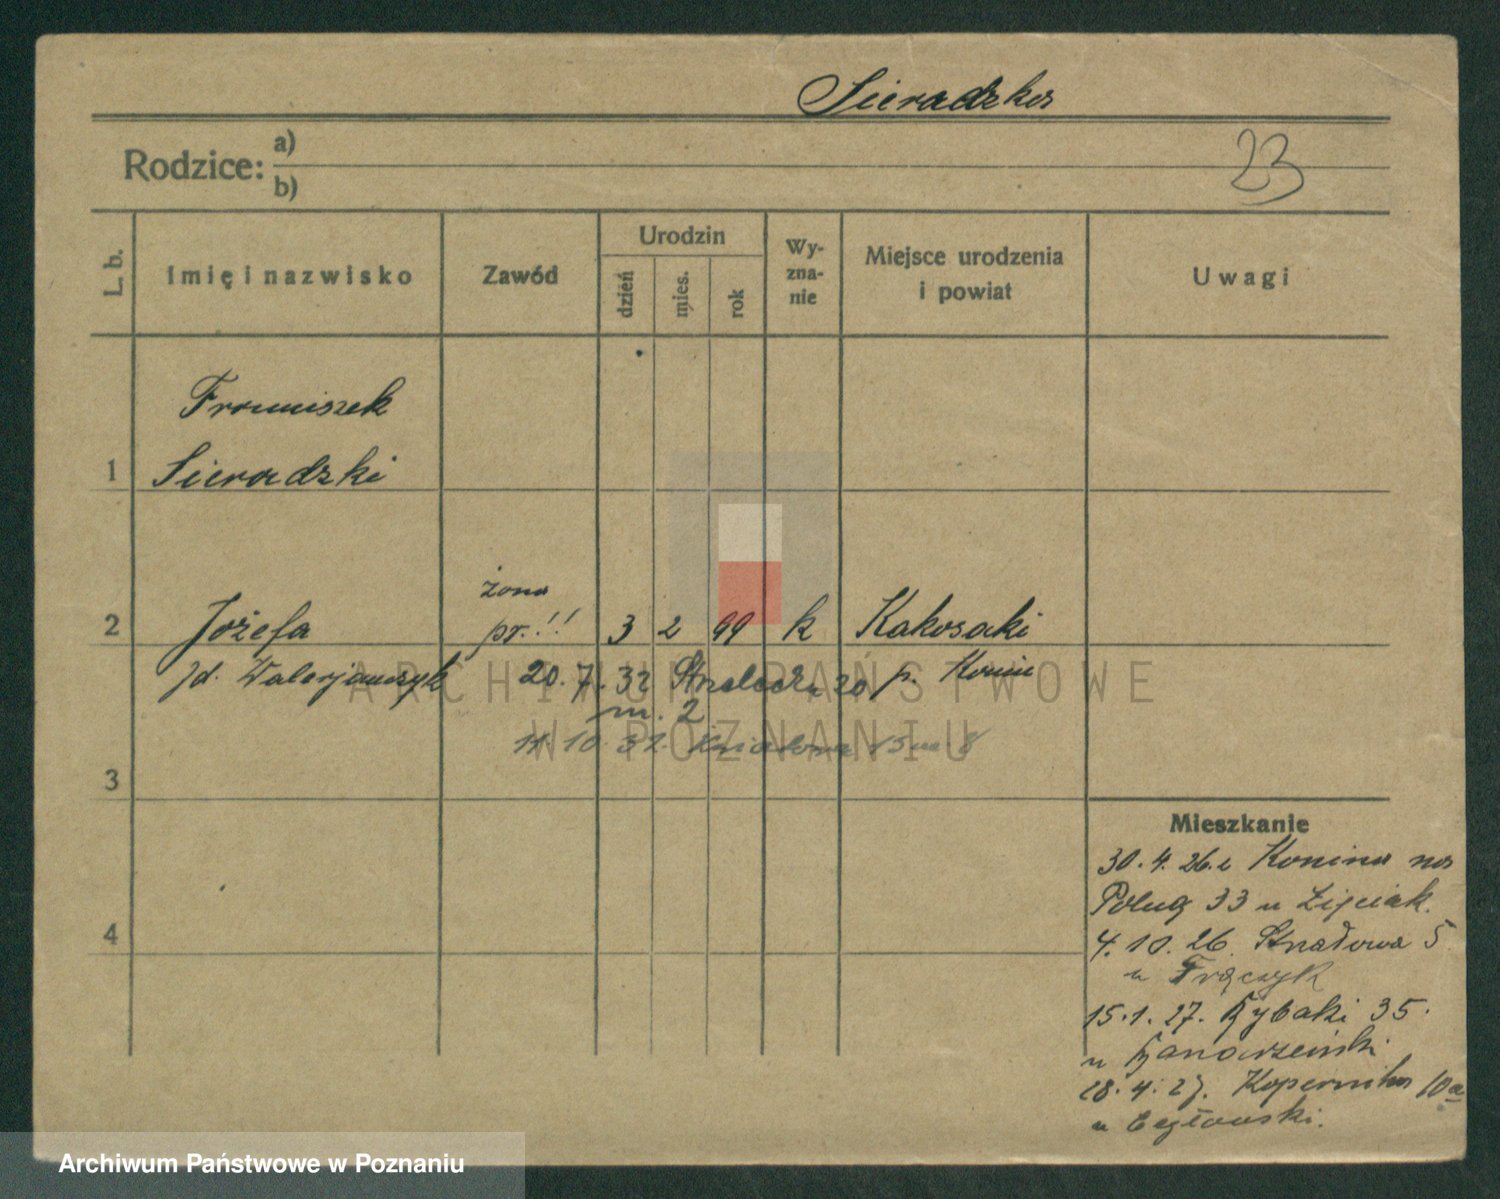 Sieradzka
23
Rodzice:
a)
b)
L. b.
Imię i nazwisko
Zawód
Urodzin
dzień
mies.
rok
Wy-
zna-
nie
Miejsce urodzenia
i powiat
Uwagi
Franciszek
1 Sieradzki
żona
2 Józefa pr.!! 3 2 99 k
p. Konin
20.7.32 Strzelecka 20
m. 2
11.10.32. 15 m 8
3
4
Mieszkanie
30.4.26. z Konina na
33 u
4.10.26. 5
u Frączyk
15.1.27. Rybaki 35.
u
28.4.27. Kopernika 10a
u
ARCHIWUM PAŃSTWOWE
W POZNANIU
Archiwum Państwowe w Poznaniu